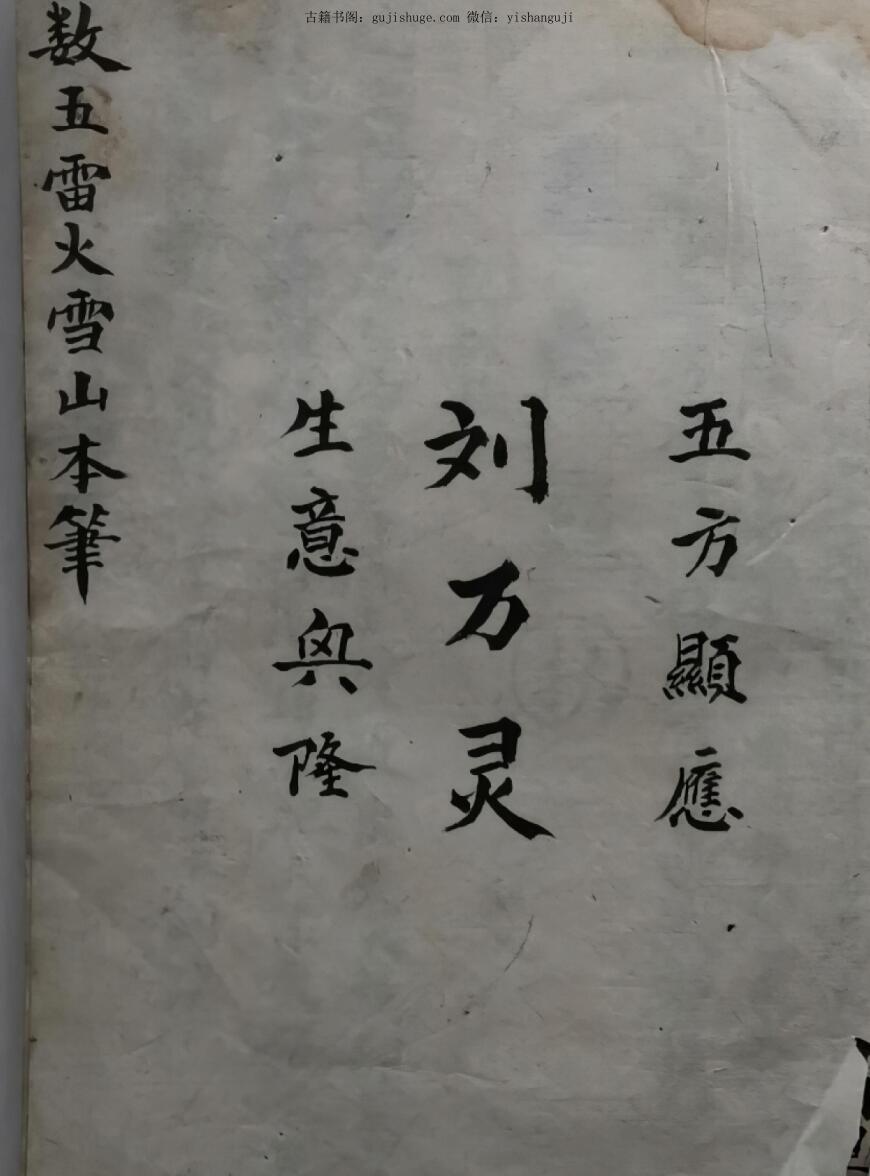 古籍书阁：gujishuge.com 微信：yishanguji
五方顯應
刘万灵
生意興隆
数五雷火雪山本筆